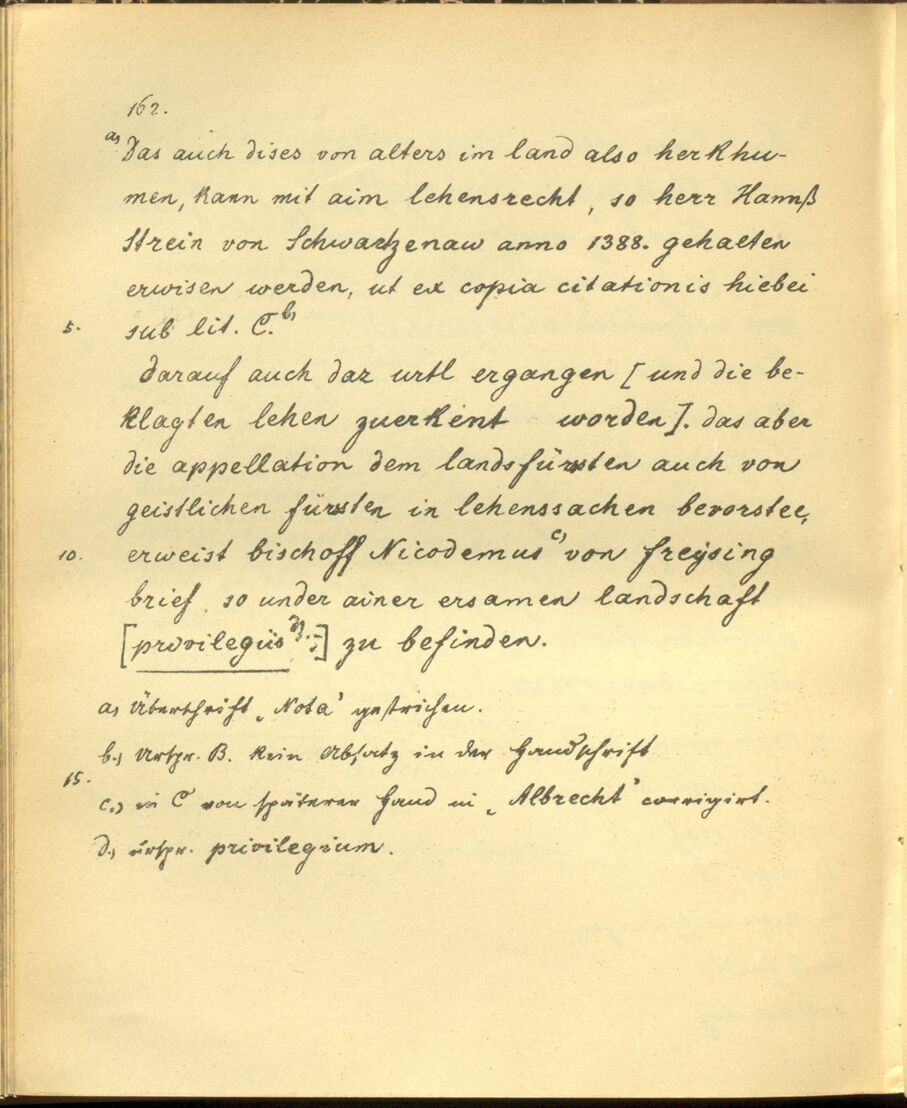 162.
a) Das auch dises von alters im land also herkhu-
men, kann mit aim lehensrecht, so herr Hannß
Strein von Schwartzenaw anno 1388. gehalten
erwisen werden, ut ex copia citationis hiebei
5. sub lit. C. b)
darauf auch daz urtl ergangen [und die be-
klagten lehen zuerkent worden]. das aber
die appellation dem landsfürsten auch von
geistlichen fürsten in lehenssachen bevorstee,
10. erweist bischoff Nicodemus c) von Freÿsing
brief, so under ainer ersamen landschaft
[privilegiis d) :] zu befinden.
a) Überschrift „Nota" gestrichen.
b.) Urspr. B. Kein Absatz in der Handschrift
15.
c.) in C von späterer Hand in „Albrecht" corrigirt.
d.) urspr. privilegium.